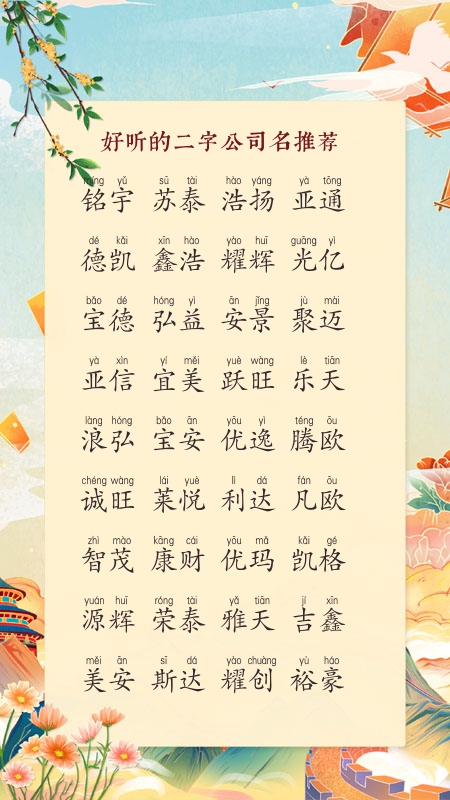 好听的二字公司名推荐
míng yǔ sū tài hào yáng yà tōng
铭宇 苏泰 浩扬 亚通
dé kǎi xīn hào yào huī guāng yì
德凯 鑫浩 耀辉 光亿
bǎo dé hóng yì ān jǐng jù mài
宝德 弘益 安景 聚迈
yà xìn yí měi yuè wàng lè tiān
亚信 宜美 跃旺 乐天
làng hóng bǎo ān yōu yì téng ōu
浪弘 宝安 优逸 腾欧
chéng wàng lái yuè lì dá fán ōu
诚旺 莱悦 利达 凡欧
zhì mào kāng cái yōu mǎ kǎi gé
智茂 康财 优玛 凯格
yuán huī róng tài yǎ tiān jí xīn
源辉 荣泰 雅天 吉鑫
měi ān sī dá yào chuàng yù háo
美安 斯达 耀创 裕豪